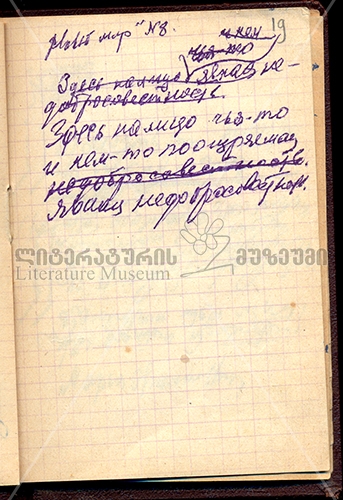 19
мир" № 8.
и кем
чья-то
Здесь налицо явная не-
добросовестность.
Здесь налицо чья-то
и кем-то поощряемая
недобросовестность.
явная недобросовестность.
ლიტერატურის მუზეუმი
Literature Museum